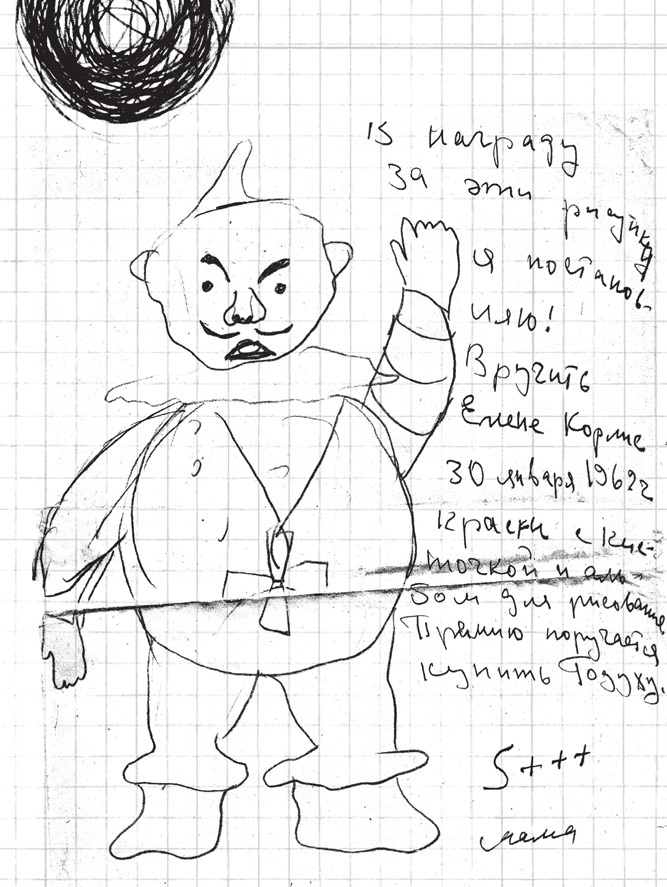 В награду
за эти
рисунки
я постанов-
ляю!
Вручить
Елене Корне
30 января 1962г
краски с кис-
точкой и аль-
бом для рисования.
Премию поручается
купить Годуху.
5+++
мама